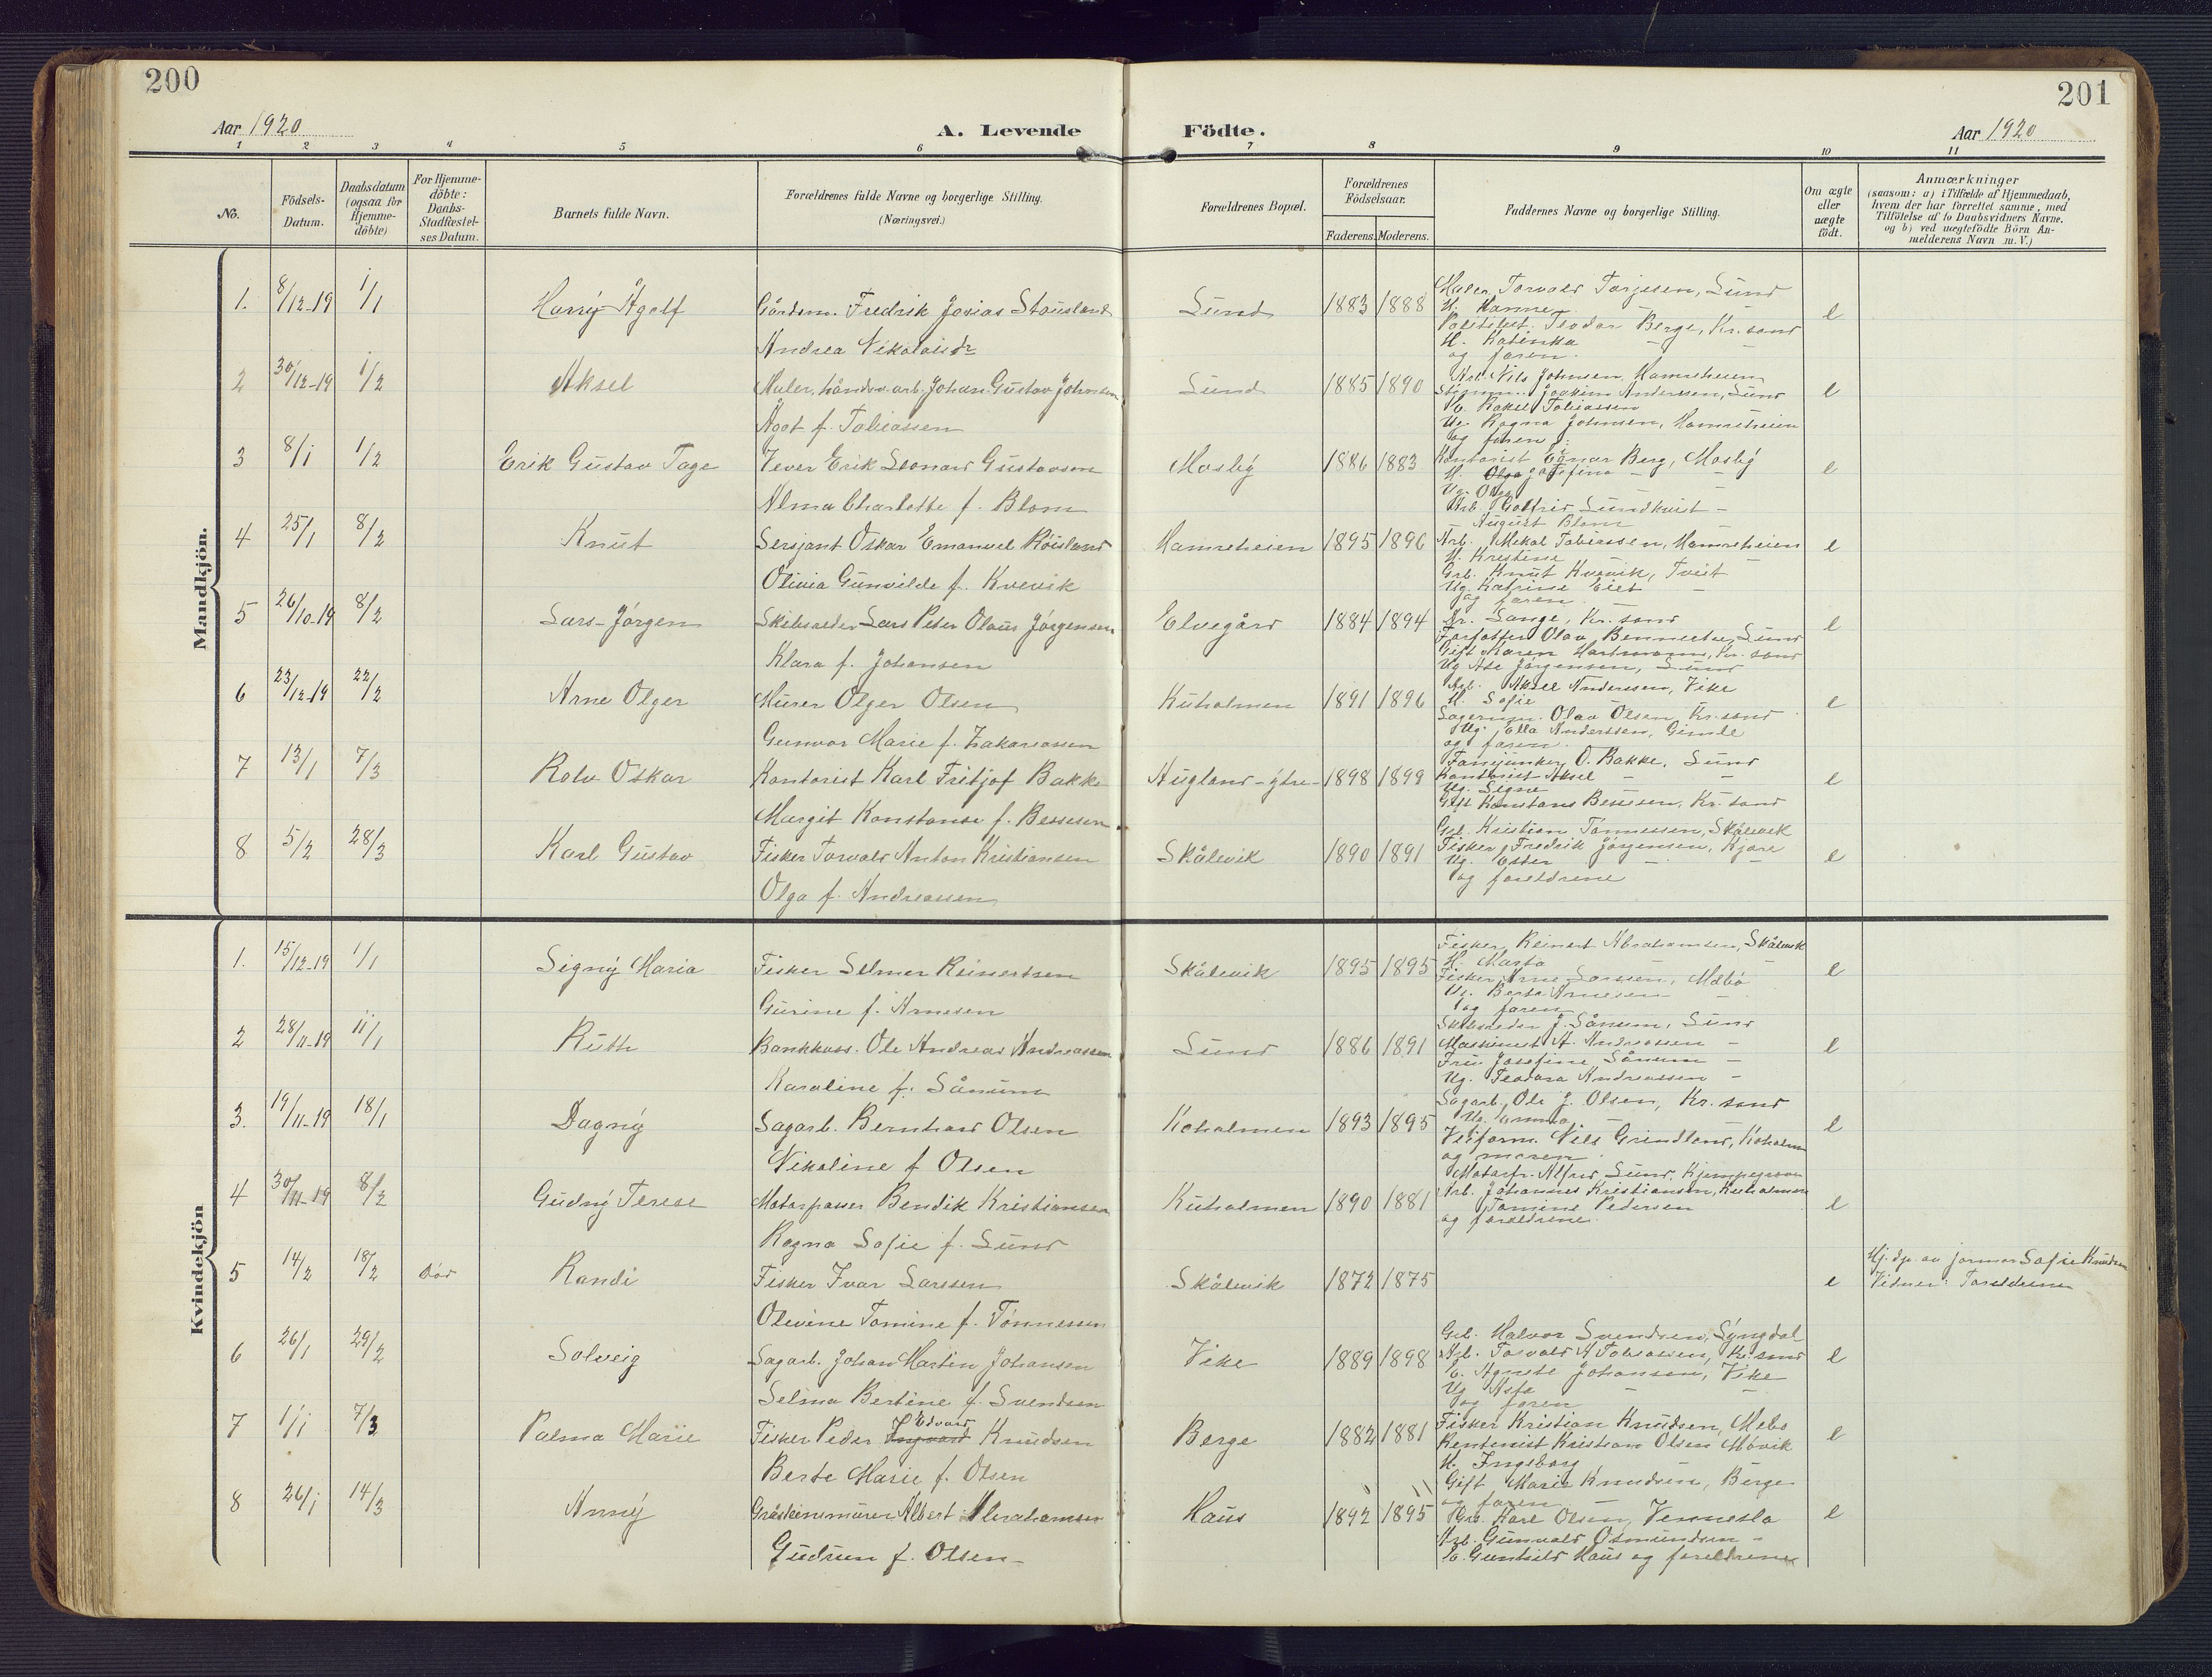 200
201
Aar 1920
A. Levende Födte.
Aar 1920
1 2 3 4 5 6 7 8 9 10 11
No.
Födsels-Datum.
Daabsdatum (ogsaa for Hjemme-döbte)
For Hjemme-döbte: Daabs-Stadfæstel-ses Datum.
Barnets fulde Navn.
Forældrenes fulde Navne og borgerlige Stilling.
(Næringsvei.)
Forældrenes Bopæl.
Forældrenes Födselsaar.
Faderens. Moderens.
Faddernes Navne og borgerlige Stilling.
Om ægte eller uægte födt.
Anmærkninger
(saasom: a) i Tilfælde af Hjemmedaab,
hvem der har forrettet samme, med
Tilföielse af to Daabsvidners Navne,
og b) ved uægtefödte Börn An-
melderens Navn m. V.)
Mandkjön.
1. 8/12-19 1/1 Harry Ågolf Gårdm. Fredrik Jovias Stausland Sund 1883 1888 e
Andrea Nikolaisdr
Maler Torvald Torjesen, Sund
H. Hanne
Politibet. Teodor Berge, Kr.sand
H. Katinka
og faren.
2 30/12-19 1/2 Aksel Maler, håndv.arb. Johan Gustav Johnsen Sund 1885 1890 e
Ågot f. Tobiassen
Arb. Nils Johnsen, Hamreheien
Joakim Anderssen, Sund
Rakel Tobiassen
Ug. Ragna Johnsen, Hamreheien
og faren
3 8/1 1/2 Erik Gustav Tage Vever Erik Leonard Gustavson Mosby 1886 1883 e
Alma Charlotte f. Blom
Kontorist Egnar Berg, Mosby
H. Josefina
Ug. Olga
Arb. Gotfrid Lundkvist
August Blom
4 25/1 8/2 Knut Sersjant Oskar Emanuel Røisland Hamreheien 1895 1896 e
Olivia Gunvilde f. Kvevik
Arb. Mekal Tobiassen, Hamreheien
H. Kristine
Grb. Knut Kvevik, Tveit
Ug. Katrine Eiet
og faren
5 26/10-19 8/2 Lars-Jørgen Skibsreder Lars Peter Olaus Jørgensen Elvegård 1884 1894 e
Klara f. Johansen
Dr. Lange, Kr.sand
Forfatter Olav Benneche, Sund
Gift Karen Hartmann, Kr.sand
Ug. Åse Jørgensen, Sund
6 23/12-19 22/2 Arne Olger Murer Olger Olsen Kuholmen 1891 1896 e
Gunvor Marie f. Zakariassen
Arb. Aksel Anderssen, Vike
H. Sofie
Olav Olsen, Kr.sand
Ug. Ella Anderssen, Gimle
og faren
7 13/1 7/3 Rolv Oskar Kontorist Karl Fritjof Bakke Augland-ytre 1898 1899 e
Margit Konstanse f. Bessesen
Fanejunker O. Bakke, Sund
Kontorist Aksel
Ug. Signe
Gift Konstans Bessesen, Kr.sand
8 5/2 28/3 Karl Gustav Fisker Torvald Anton Kristiansen Skålevik 1890 1891 e
Olga f. Andreassen
Grb. Kristian Tønnessen, Skålevik
Fisker Fredrik Jørgensen, Kjøre
Ug. Ester
og foreldrene
Kvindekjön
1. 15/12-19 1/1 Signy Maria Fisker Selmer Reinertsen Skålevik 1895 1895 e
Gurine f. Arnesen
Fisker Reinert Abrahamsen, Skålevik
H. Marta
Fisker Arne Larssen, Mebø
Ug. Berta Arnesen
og faren
2 28/11-19 11/1 Ruth Bankkass. Ole Andreas Andreassen Sund 1886 1891 e
Karoline f. Sånum
Skibsreder J. Sånum, Sund
Maskinist A. Andreassen
Fru Josefine Sånum
Ug. Teodora Andreassen
3. 19/11-19 18/1 Dagny Sagarb. Bernhard Olsen Koholmen 1893 1895 e
Nikoline f. Olsen
Sagarb. Ole J. Olsen, Kr.sand
Ug. Emma
Veiform. Nils Grindland, Koholmen
og moren.
4 30/11-19 8/2 Gudny Terese Motorpasser Bendik Kristiansen Kuholmen 1890 1881 e
Ragna Sofie f. Sund
Motorfr. Alfred Sund, Kjempegraven
Arb. Johannes Kristiansen, Kuholmen
Tomine Pedersen
og foreldrene.
5 14/2 18/2 død Randi Fisker Ivar Larssen Skålevik 1872 1875 e
Olivine Tomine f. Tønnessen
Hj.dp. av jormor Sofie Knudsen
Vidner: Foreldrene
6 26/1 29/2 Solveig Sagarb. Johan Martin Johansen Vike 1889 1898 e
Selma Bertine f. Svendsen
Grb. Halvor Svendsen, Lyngdal
Arb. Torvald A Tobiassen, Kr.sand
E. Agnete Johansen, Vike
Ug. Asta
og faren
7 1/1 7/3 Palma Marie Fisker Peder Edvard Ingvard Knudsen Berge 1882 1881 e
Berte Marie f. Olsen
Fisker Kristian Knudsen, Mebø
Rentenist Kristian Olsen Møvik
H. Ingeborg
Gift Marie Knudsen, Berge
og faren
8 26/1 14/3 Anny Gråsteinsmurer Albert Abrahamsen Haus 1892 1895 e
Gudrun f. Olsen
Grb. Karl Olsen, Vennesla
Arb. Gunvald Osmundsen
E. Gunhild Haus og foreldrene